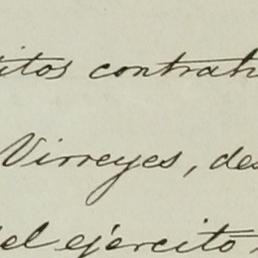 itos contrah
Virreyes, des
del ejército